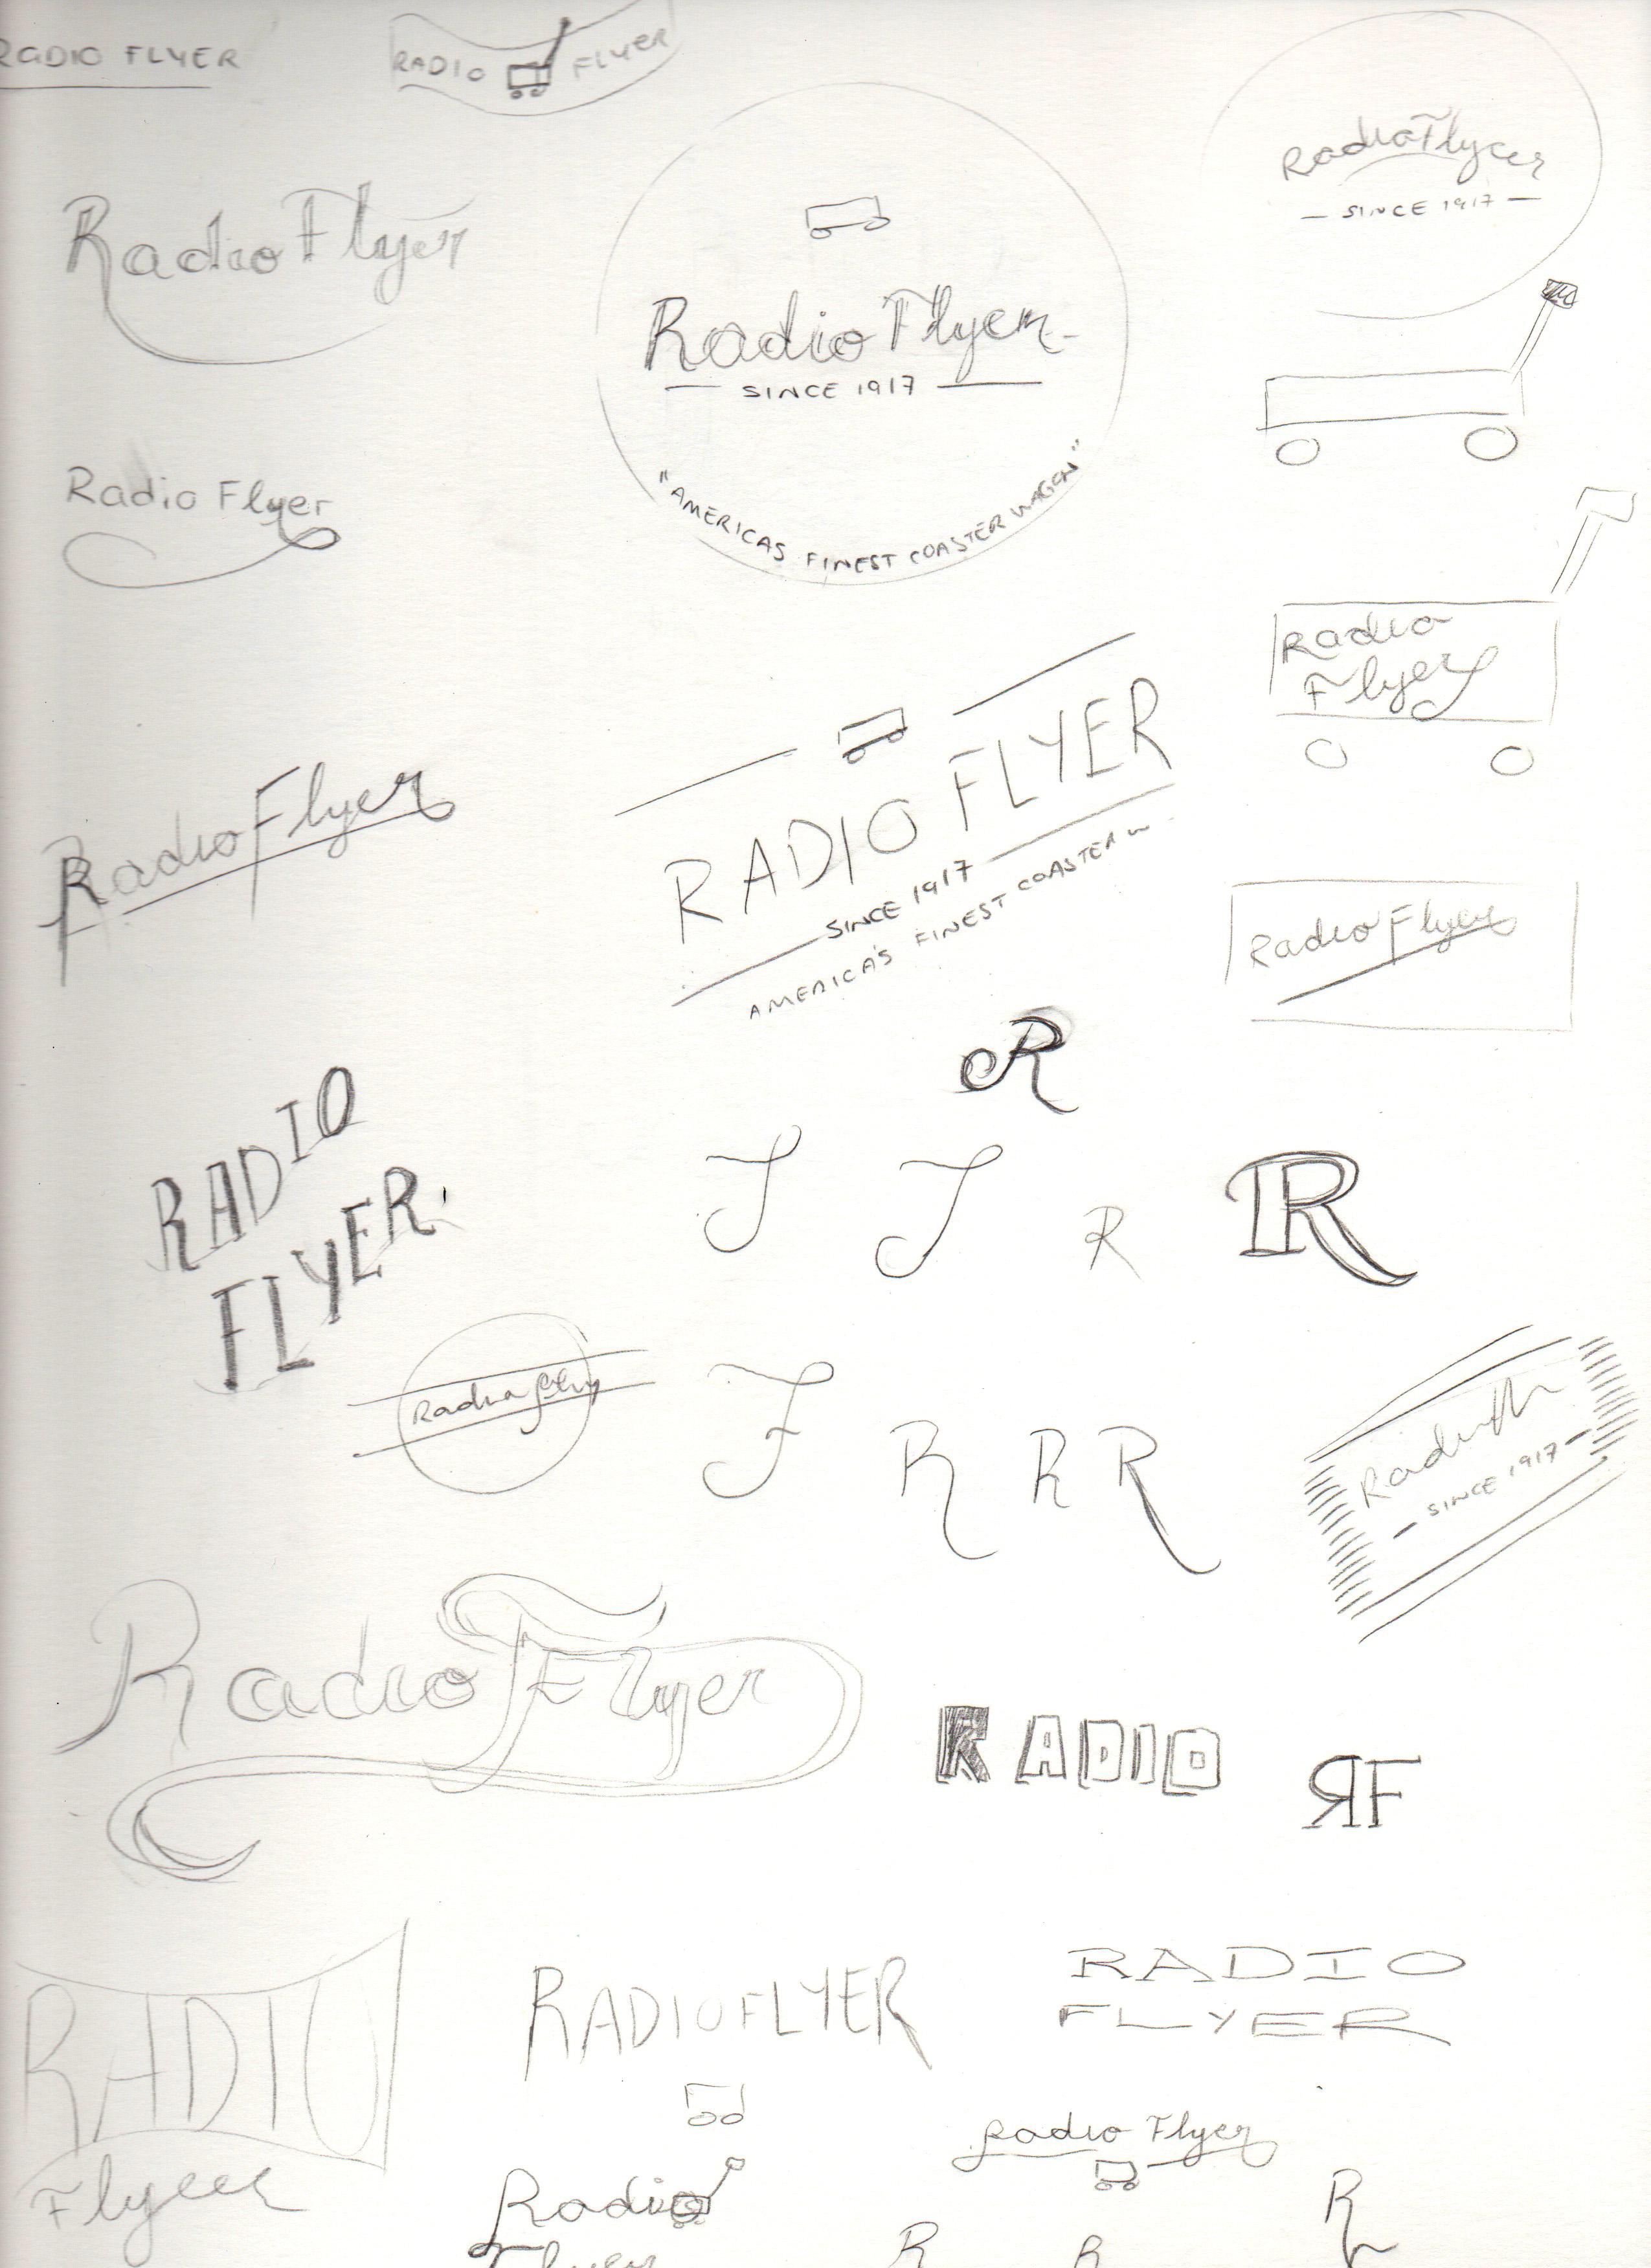 RADIO FLYER
RADIO FLYER
Radio Flyer
Radio Flyer
SINCE 1917
"AMERICAS FINEST COASTER WAGEN"
Radio Flyer
— SINCE 1917 —
Radio Flyer
Radio
Flyer
Radio Flyer
RADIO FLYER
SINCE 1917
AMERICA'S FINEST COASTER W
Radio Flyer
R
RADIO
FLYER.
R
R
Radio
F
R R R
Radio
— SINCE 1917 —
Radio Flyer
RADIO
RF
RADIO
Flyer
RADIO FLYER
RADIO
FLYER
Radio Flyer
Radio
Flyer
R
R
R